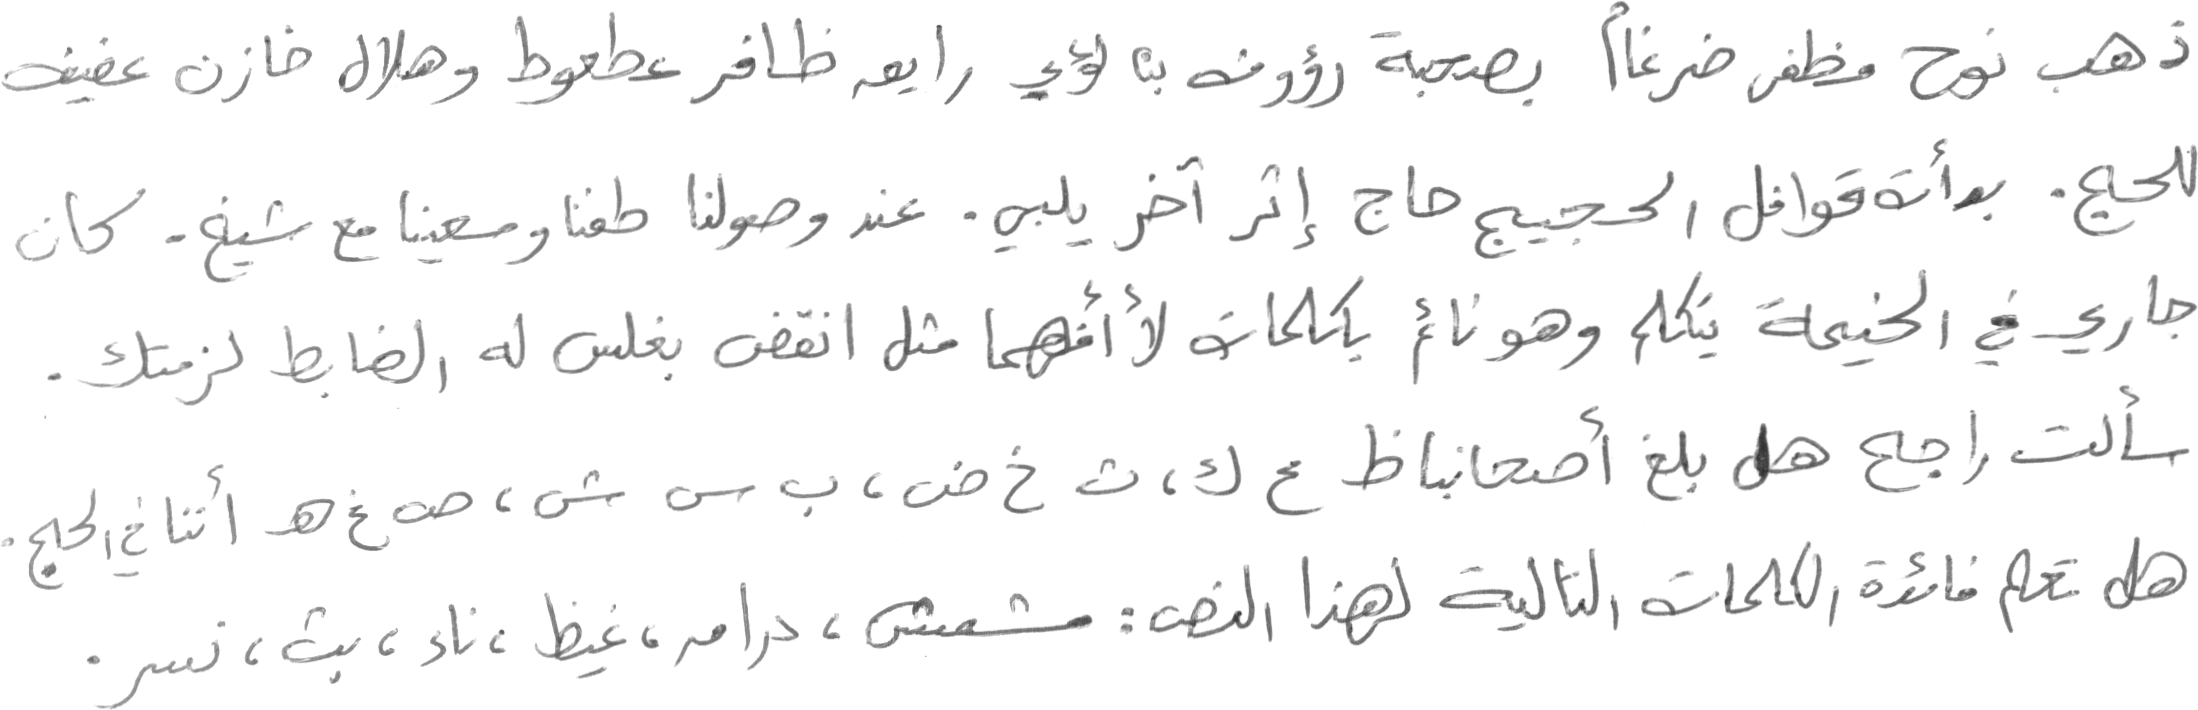 ذهب نوح مظفر ضرغام بصحبة رؤوف بن لؤي رايم ظافر عطعوط وهلال خازن عفيف
للحج. بدأت قوافل الحجيج حاج إثر آخر يلبي. عند وصولنا طفنا وسعينا مع شيخ. كان
جاري في الخيمة يتكلم وهو نائم بكلمات لا أفهمها مثل انقض بغلس له الضابط لزمتك.
سألت راجح هل بلغ أصحابنا ظ ع ك، ث خ ض، ب س ش، ص غ هـ أننا في الحج.
هل تعلم فائدة الكلمات التالية لهذا النص: مشمش، درامه، غيظ، ناء، بث، نسر.